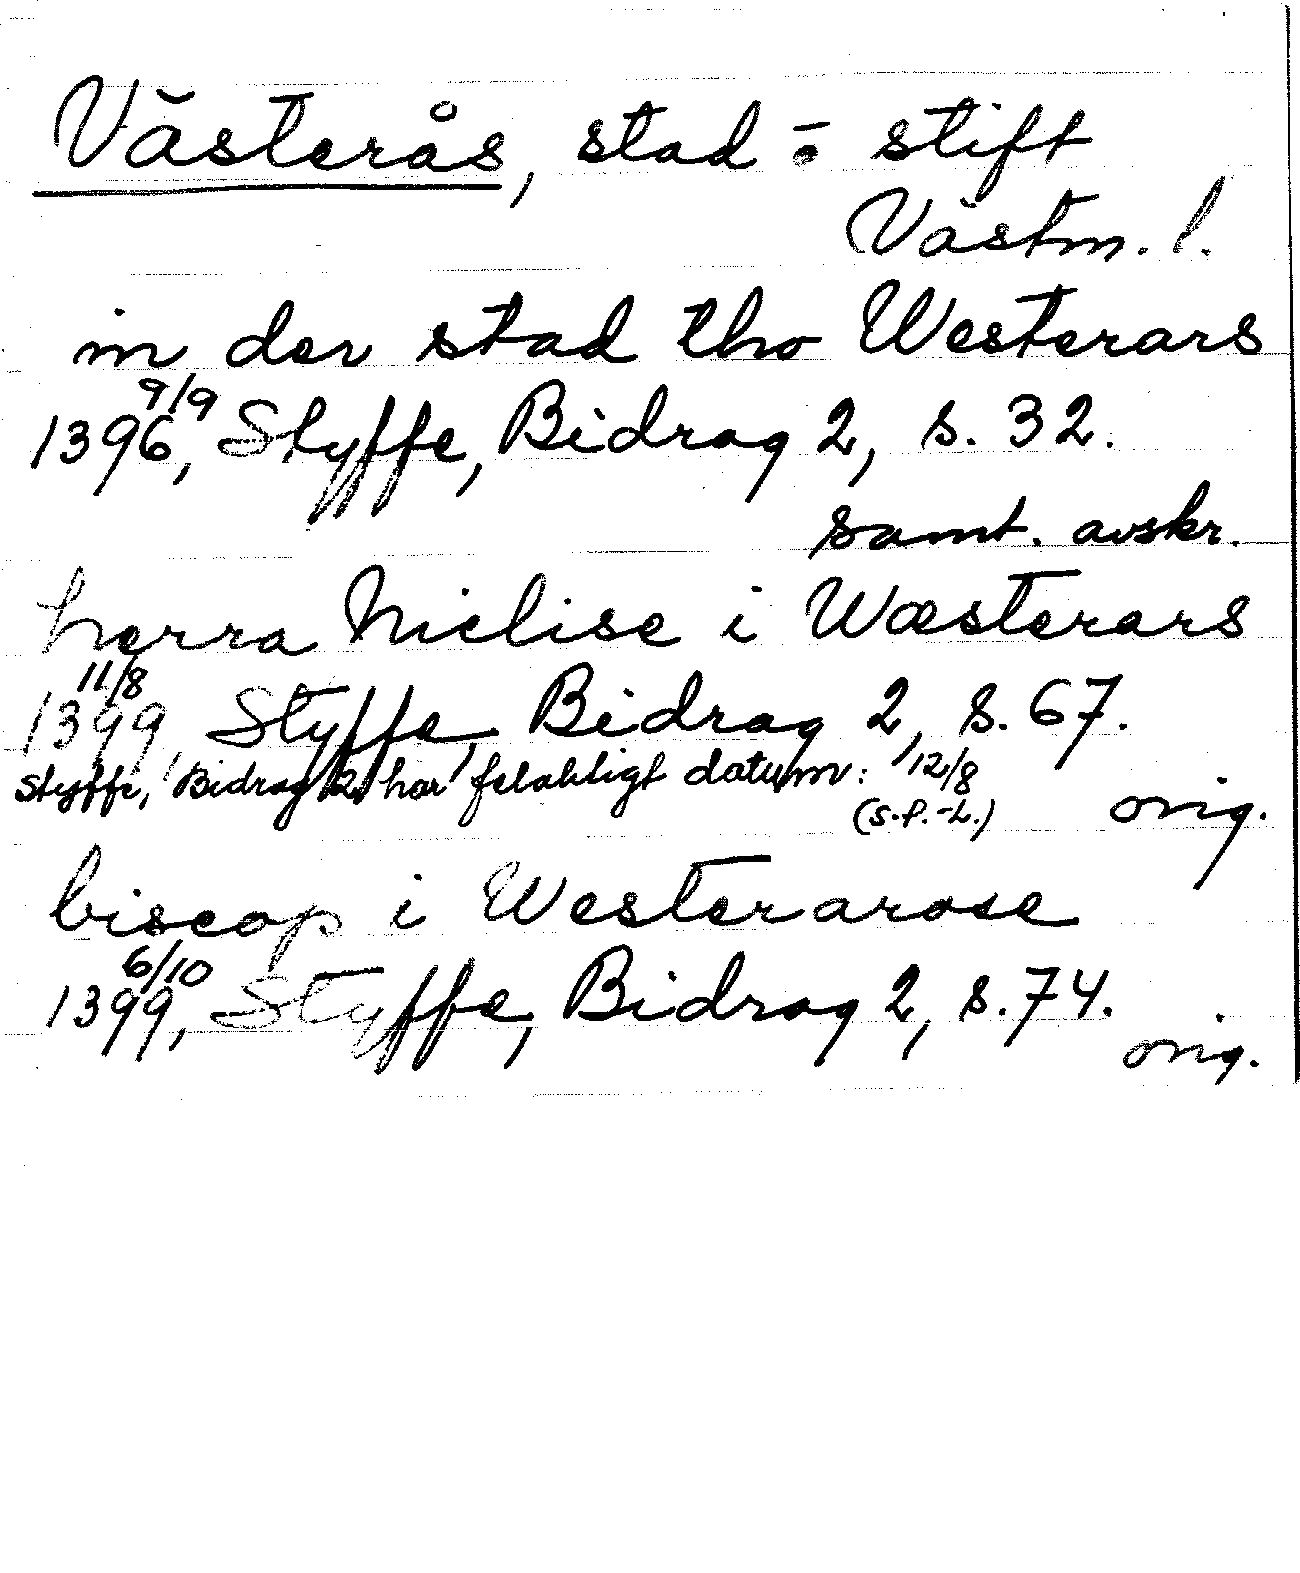 Västerås, stad o stift
Västm. l.
in der stad tho Westerars
1396 9/9, Styffe, Bidrag 2, s. 32.
samt. avskr.
herra Niclise i Wæsterars
1399 11/8, Styffe, Bidrag 2, s. 67.
Styffe, Bidrag 2, har felaktigt datum: 12/8
(S.P.-L.) orig.
biscop i Westerarose
1399 6/10, Styffe, Bidrag 2, s. 74.
orig.